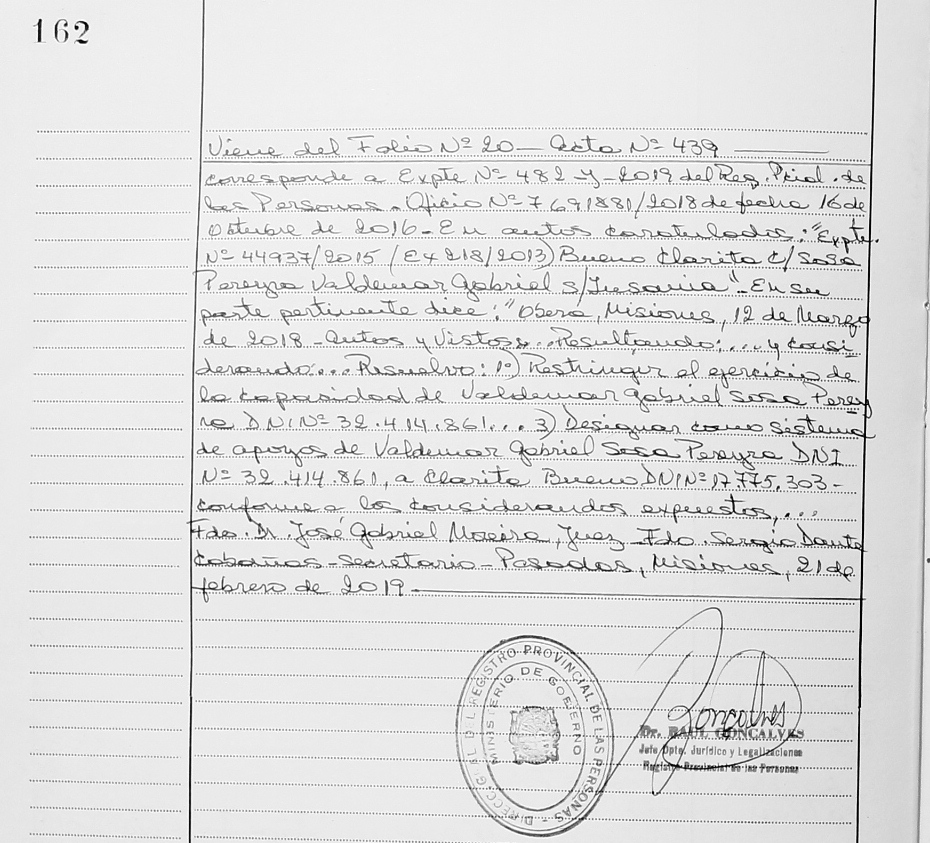 162
Viene del Folio Nº 20 — Acta Nº 439
corresponde a Expte Nº 482-Y-2019 del Reg. Pcial. de
las Personas. Oficio Nº 7691881/2018 de fecha 16 de
Octubre de 2016 - En autos caratulados: "Expte.
Nº 44937/2015 (Ex 218/2013) Bueno Clarita C/ Sosa
Pereyra Valdemar Gabriel s/Insania". En su
parte pertinente dice: "Oberá, Misiones, 12 de Marzo
de 2018 - Autos y Vistos: ... Resultando: ... y consi
derando: ... Resuelvo: 1º) Restringir el ejercicio de
la capacidad de Valdemar Gabriel Sosa Perey
ra DNI Nº 32.414.861... 3) Designar como sistema
de apoyos de Valdemar Gabriel Sosa Pereyra DNI
Nº 32.414.861, a Clarita Bueno DNI Nº 17.775.303-
conforme a los considerandos expuestos, ...
Fdo. Dr. José Gabriel Moreira, Juez - Fdo. Sergio Dante
Cabañas - Secretario - Posadas, Misiones, 21 de
febrero de 2019
DIRECC. GRAL. DEL REGISTRO PROVINCIAL DE LAS PERSONAS
MINISTERIO DE GOBIERNO
Goncalves
Dr. RAUL GONCALVES
Jefe Dpto. Jurídico y Legalizaciones
Registro Provincial de las Personas